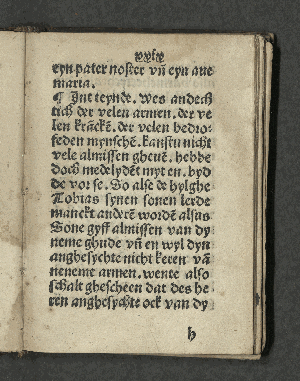 xxlix
eyn pater noster vñ eyn aue
maria.
¶ Int teynde. Wes andech
tich der velen armen. der ve
len krãckẽ. der velen bedro-
feden mynschẽ. kanstu nicht
vele almissen gheuẽ. hebbe
doch medelydẽt myt en. byd
de vor se. So alse de hylghe
Tobias synen sonen lerde
manckt anderẽ wordẽ alsus
Sone gyff almissen van dy
neme ghude vñ en wyl dyn
anghesychte nicht keren vã
nenemt armen. wente also
schalt ghescheen dat des he
ren anghesychte ock van dy
h